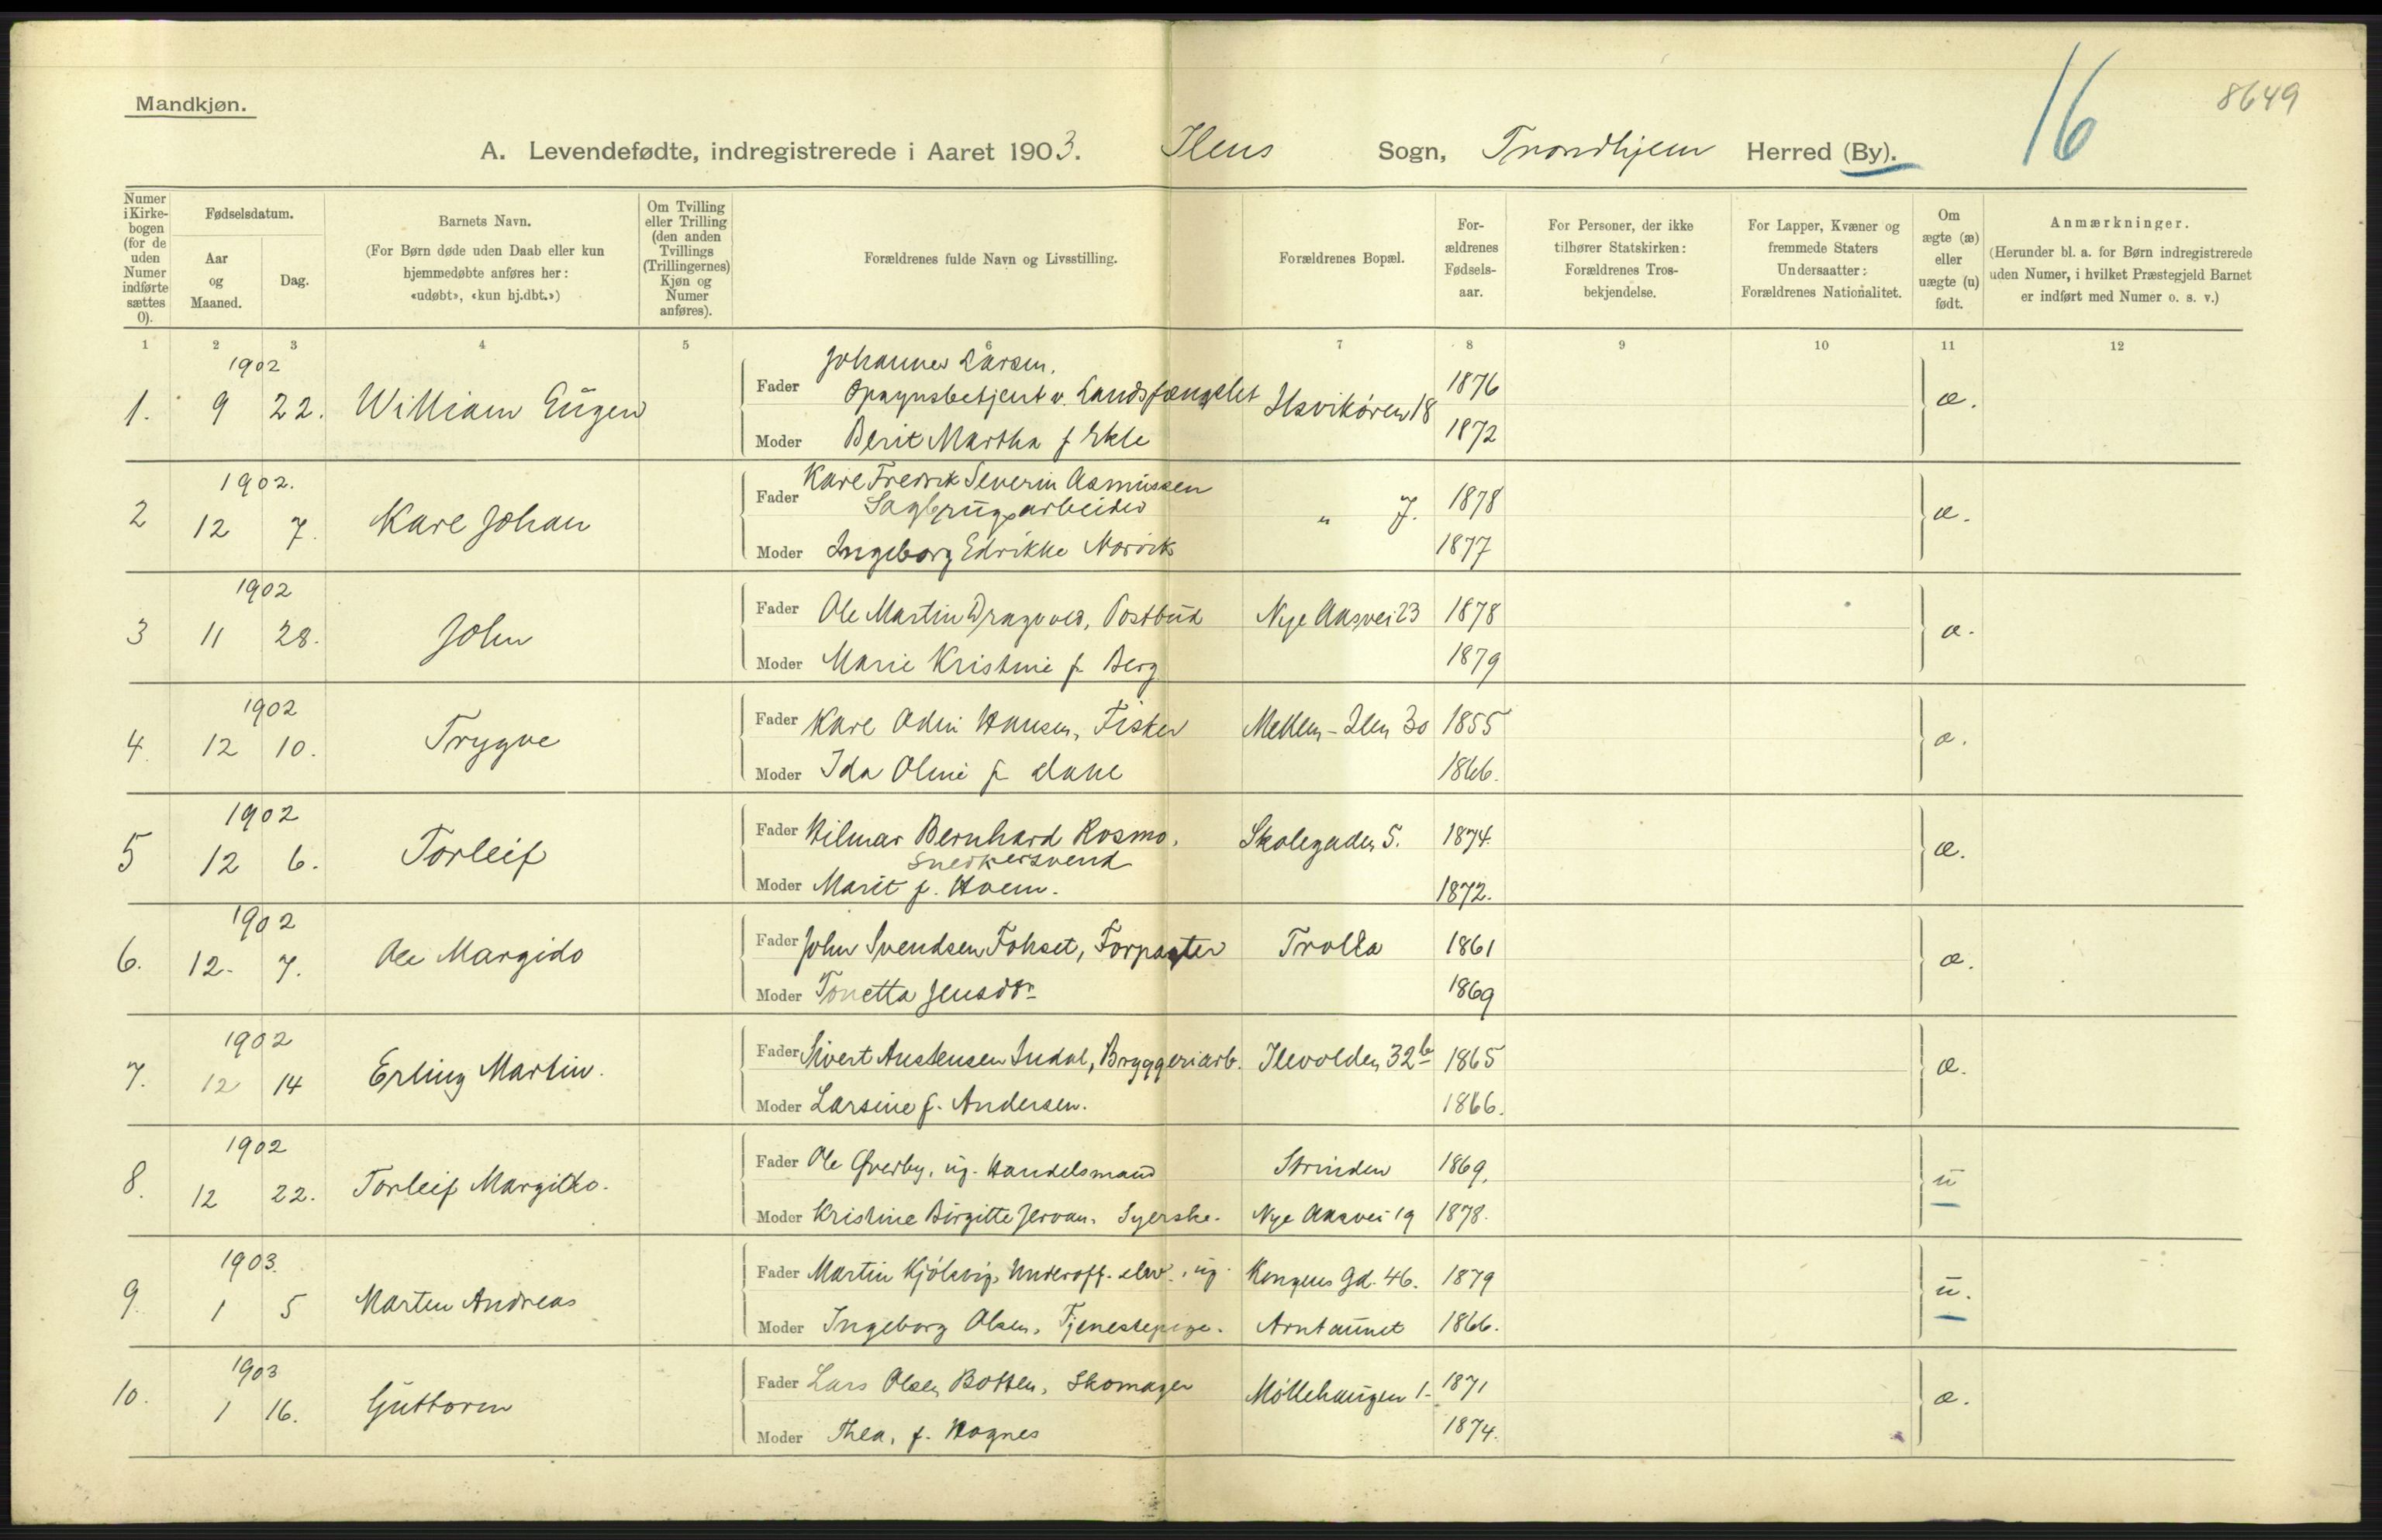 Mandkjøn.
16
8649
A. Levendefødte, indregistrerede i Aaret 1903. Ilens Sogn, Trondhjem Herred (By).
Numer i Kirkebogen (for de uden Numer indførte sættes 0).
Fødselsdatum.
Aar og Maaned.
Dag.
Barnets Navn.
(For Børn døde uden Daab eller kun hjemmedøbte anføres her: «udøbt», «kun hj.dbt.»)
Om Tvilling eller Trilling (den anden Tvillings (Trillingernes) Kjøn og Numer anføres).
Forældrenes fulde Navn og Livsstilling.
Forældrenes Bopæl.
Forældrenes Fødselsaar.
For Personer, der ikke tilhører Statskirken: Forældrenes Trosbekjendelse.
For Lapper, Kvæner og fremmede Staters Undersaatter: Forældrenes Nationalitet.
Om ægte (æ) eller uægte (u) født.
Anmærkninger.
(Herunder bl. a. for Børn indregistrerede uden Numer, i hvilket Præstegjeld Barnet er indført med Numer o. s. v.)
1 2 3 4 5 6 7 8 9 10 11 12
1902
1. 9 22. William Eugen
Fader Johannes Larsen.
Opsynsbetjent v. Landsfængslet Ilsvikøren 18 1876 æ.
Moder Berit Martha f Ekle 1872
1902.
2 12 7. Karl Johan
Fader Karl Fredrik Severin Asmussen
Sagbrugsarbeider " 7. 1878 æ.
Moder Ingeborg Edrikke Norvik 1877
1902
3 11 28. John
Fader Ole Martin Dragvold, Postbud Nye Aasvei 23 1878 æ.
Moder Marie Kristine f. Berg 1879
1902
4. 12 10. Trygve
Fader Karl Odin Hansen, Fisker Mellem-Ilen 30 1855 æ.
Moder Ida Oline f. 1866.
1902
5 12 6. Torleif
Fader Hilmar Bernhard Rosmo, Skolegaden 5. 1874. æ.
Snedkersvend
Moder Marit f. Hoem. 1872.
1902
6. 12. 7. Ole Margido
Fader John Svendsen Fokset, Forpagter Trolla 1861 æ.
Moder Tonetta Jensdr. 1869
1902
7. 12 14 Erling Martin.
Fader Sivert Austensen Indal, Bryggeriarb. Ilevolden 32b 1865 æ.
Moder Larsine f. Andersen. 1866.
1902
8. 12 22. Torleif Margido.
Fader Ole Overby, ug. Handelsmand Strinden 1869. u
Moder Kristine Birgitte Jervan, Syerske. Nye Aasvei 19 1878.
1903.
9. 1 5 Marten Andreas
Fader Martin Kjølsvig, Underoff. elev., ug. Kongens Gd. 46. 1879 u.
Moder Ingeborg Olsen, Tjenestepige. Arntaunet 1866.
1903
10. 1 16. Guttorm
Fader Lars Olsen Botten, Skomager Møllehaugen 1. 1871 æ.
Moder Thea, f. Hognes 1874.